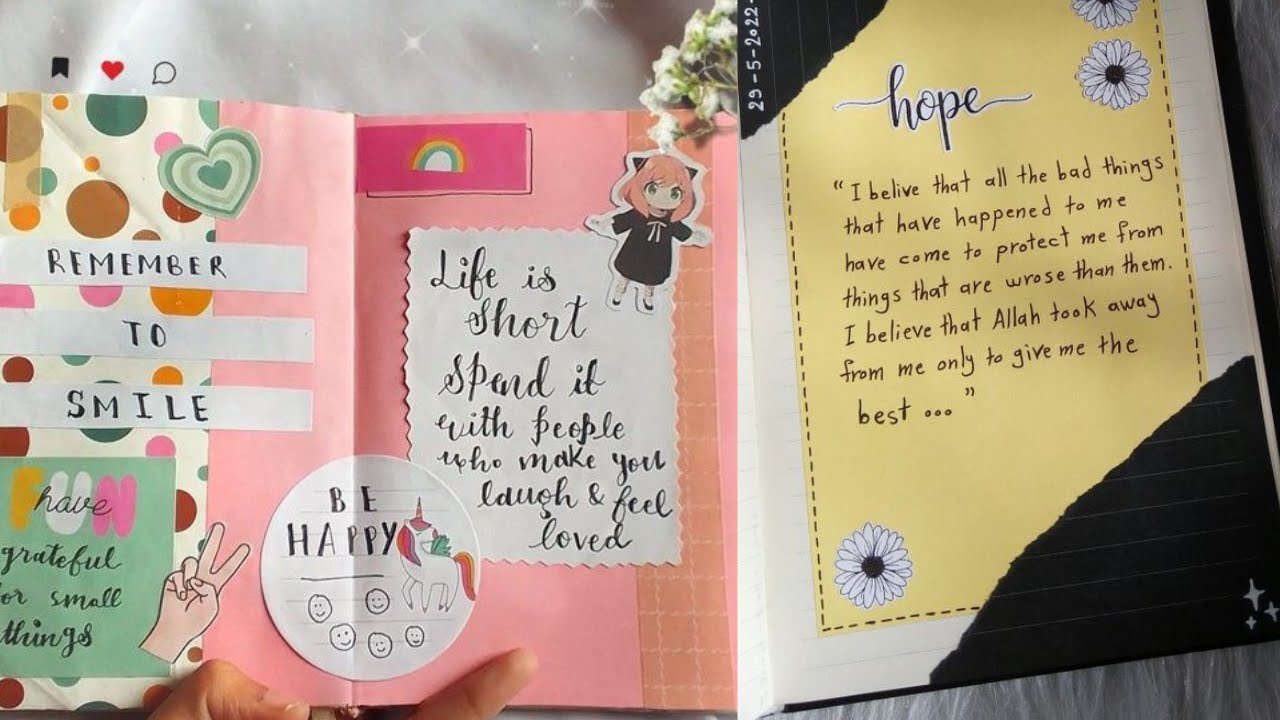 REMEMBER
TO
SMILE
FUN
have
grateful
for small
things
BE
HAPPY
Life is
Short
Spend it
with people
who make you
laugh & feel
loved
29-5-2022
hope
"I belive that all the bad things
that have happened to me
have come to protect me from
things that are wrose than them.
I believe that Allah took away
from me only to give me the
best ..."